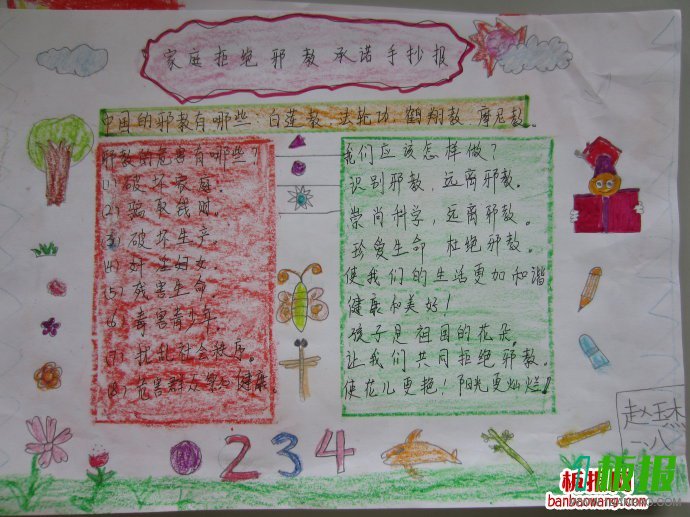 家庭拒绝邪教承诺手抄报
中国的邪教有哪些：白莲教 法轮功 鹤翔教 摩尼教。
邪教的危害有哪些？
(1) 破坏家庭。
(2) 骗取钱财。
(3) 破坏生产。
(4) 奸淫妇女。
(5) 残害生命
(6) 毒害青少年。
(7) 扰乱社会秩序。
(8) 危害群众身心健康。
我们应该怎样做？
识别邪教，远离邪教。
崇尚科学，远离邪教。
珍爱生命 杜绝邪教。
使我们的生活更加和谐
健康和美好！
孩子是祖国的花朵。
让我们共同拒绝邪教。
使花儿更艳！阳光更灿烂！
一、八
1234
板报
banbaowang.com